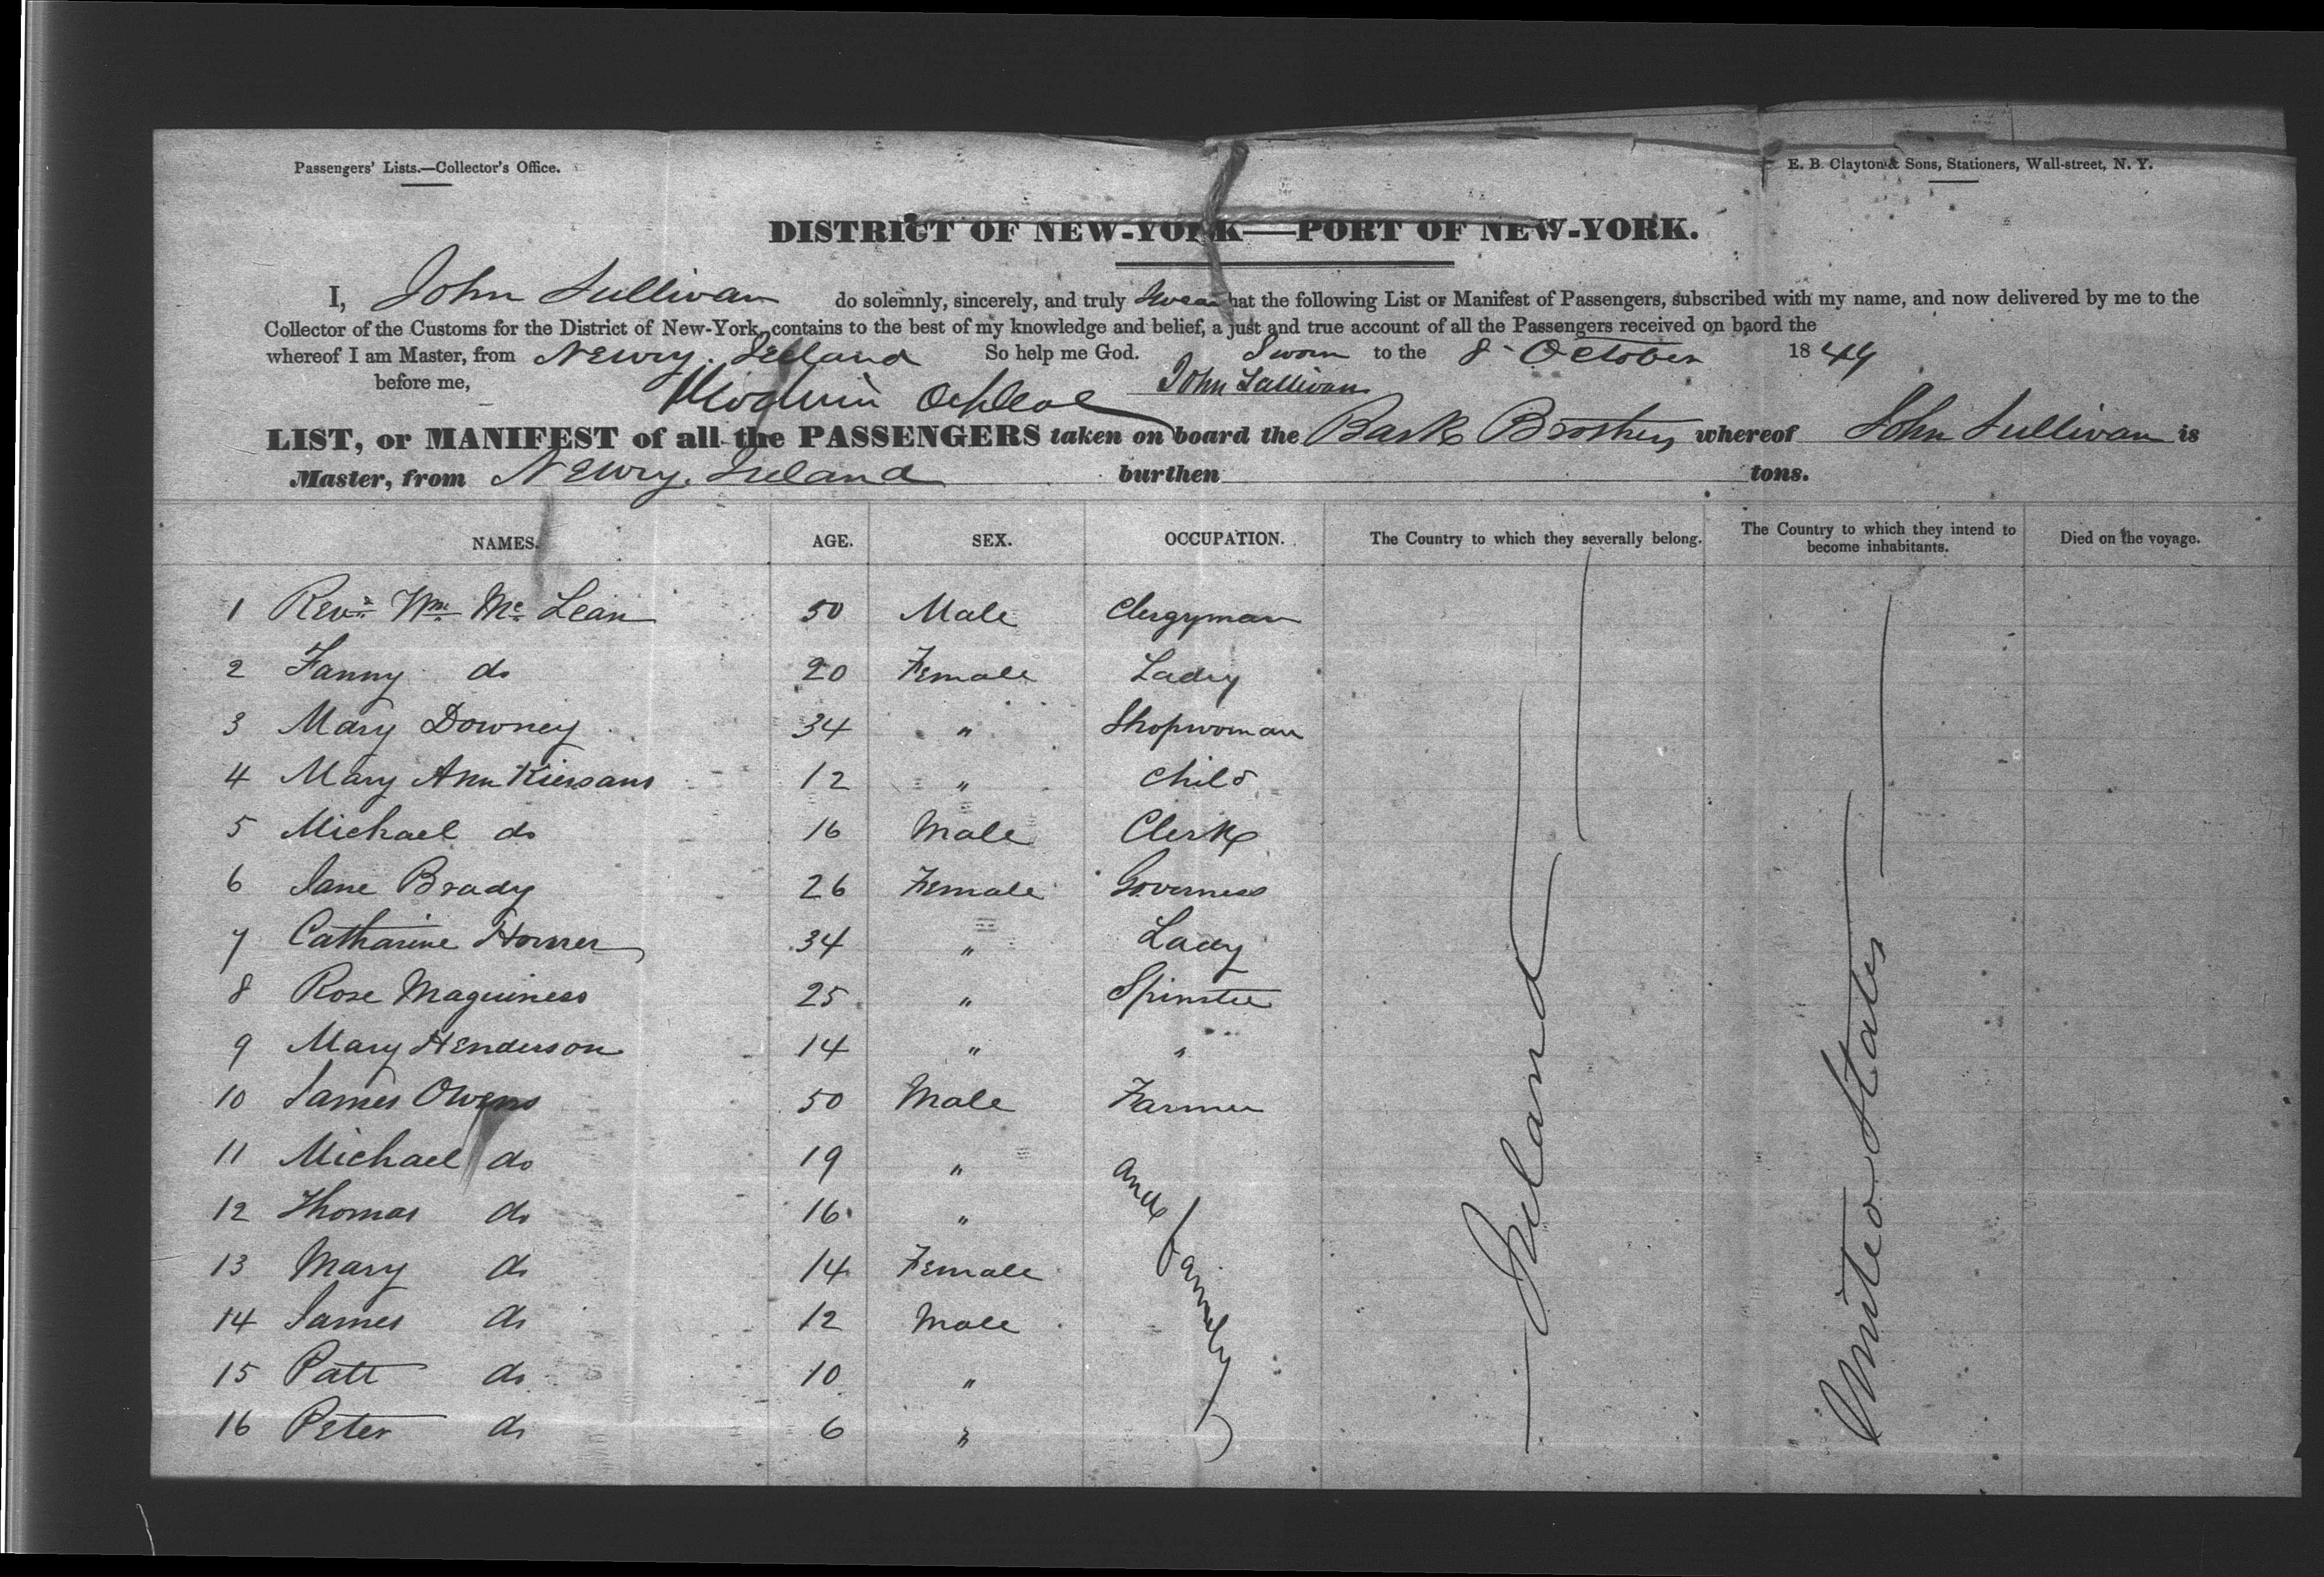 Passengers' Lists.—Collector's Office.
E. B. Clayton & Sons, Stationers, Wall-street, N. Y.
DISTRICT OF NEW-YORK—PORT OF NEW-YORK.
I, John Sullivan do solemnly, sincerely, and truly Swear that the following List or Manifest of Passengers, subscribed with my name, and now delivered by me to the
Collector of the Customs for the District of New-York, contains to the best of my knowledge and belief, a just and true account of all the Passengers received on baord the
whereof I am Master, from Newry. Ireland So help me God. Sworn to the 8 October 1849
before me, John Sullivan
LIST, or MANIFEST of all the PASSENGERS taken on board the Bark Brothers whereof John Sullivan is
Master, from Newry. Ireland burthen tons.
NAMES. AGE. SEX. OCCUPATION. The Country to which they severally belong. The Country to which they intend to become inhabitants. Died on the voyage.
1 Revd. Wm. Mc Lean 50 Male Clergyman
2 Fanny do 20 Female Lady
3 Mary Downey 34 " Shopwoman
4 Mary Ann Kiersans 12 " Child
5 Michael do 16 Male Clerk
6 Jane Brady 26 Female Governess
7 Catharine 34 " Lady
8 Rose Maguiness 25 " Spinster
9 Mary Henderson 14 " "
10 James Owens 50 Male Farmer
11 Michael do 19 " and family
12 Thomas do 16 "
13 Mary do 14 Female
14 James do 12 Male
15 Patt do 10 "
16 Peter do 6 "
Ireland
United States